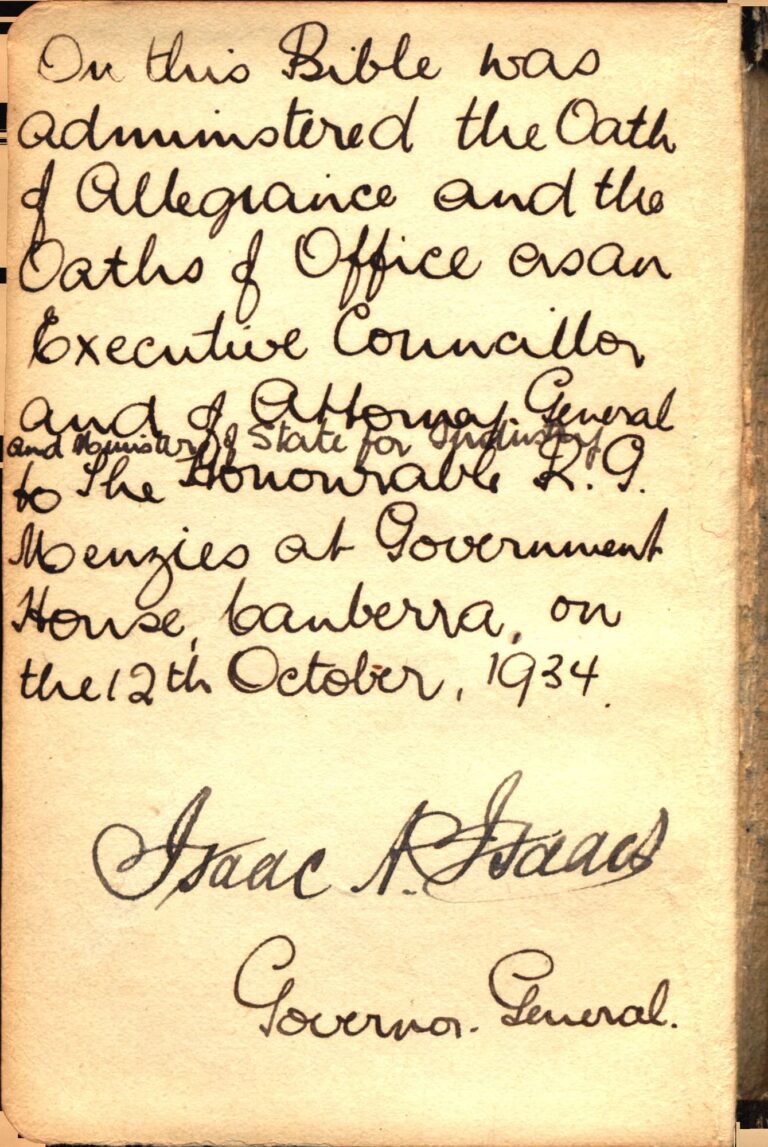 On this Bible was
administered the Oath
of Allegiance and the
Oaths of Office as an
Executive Councillor
and of Attorney General
and Minister of State for Industry
to The Honourable R. G.
Menzies at Government
House, Canberra, on
the 12th October, 1934.
Isaac A. Isaacs
Governor-General.